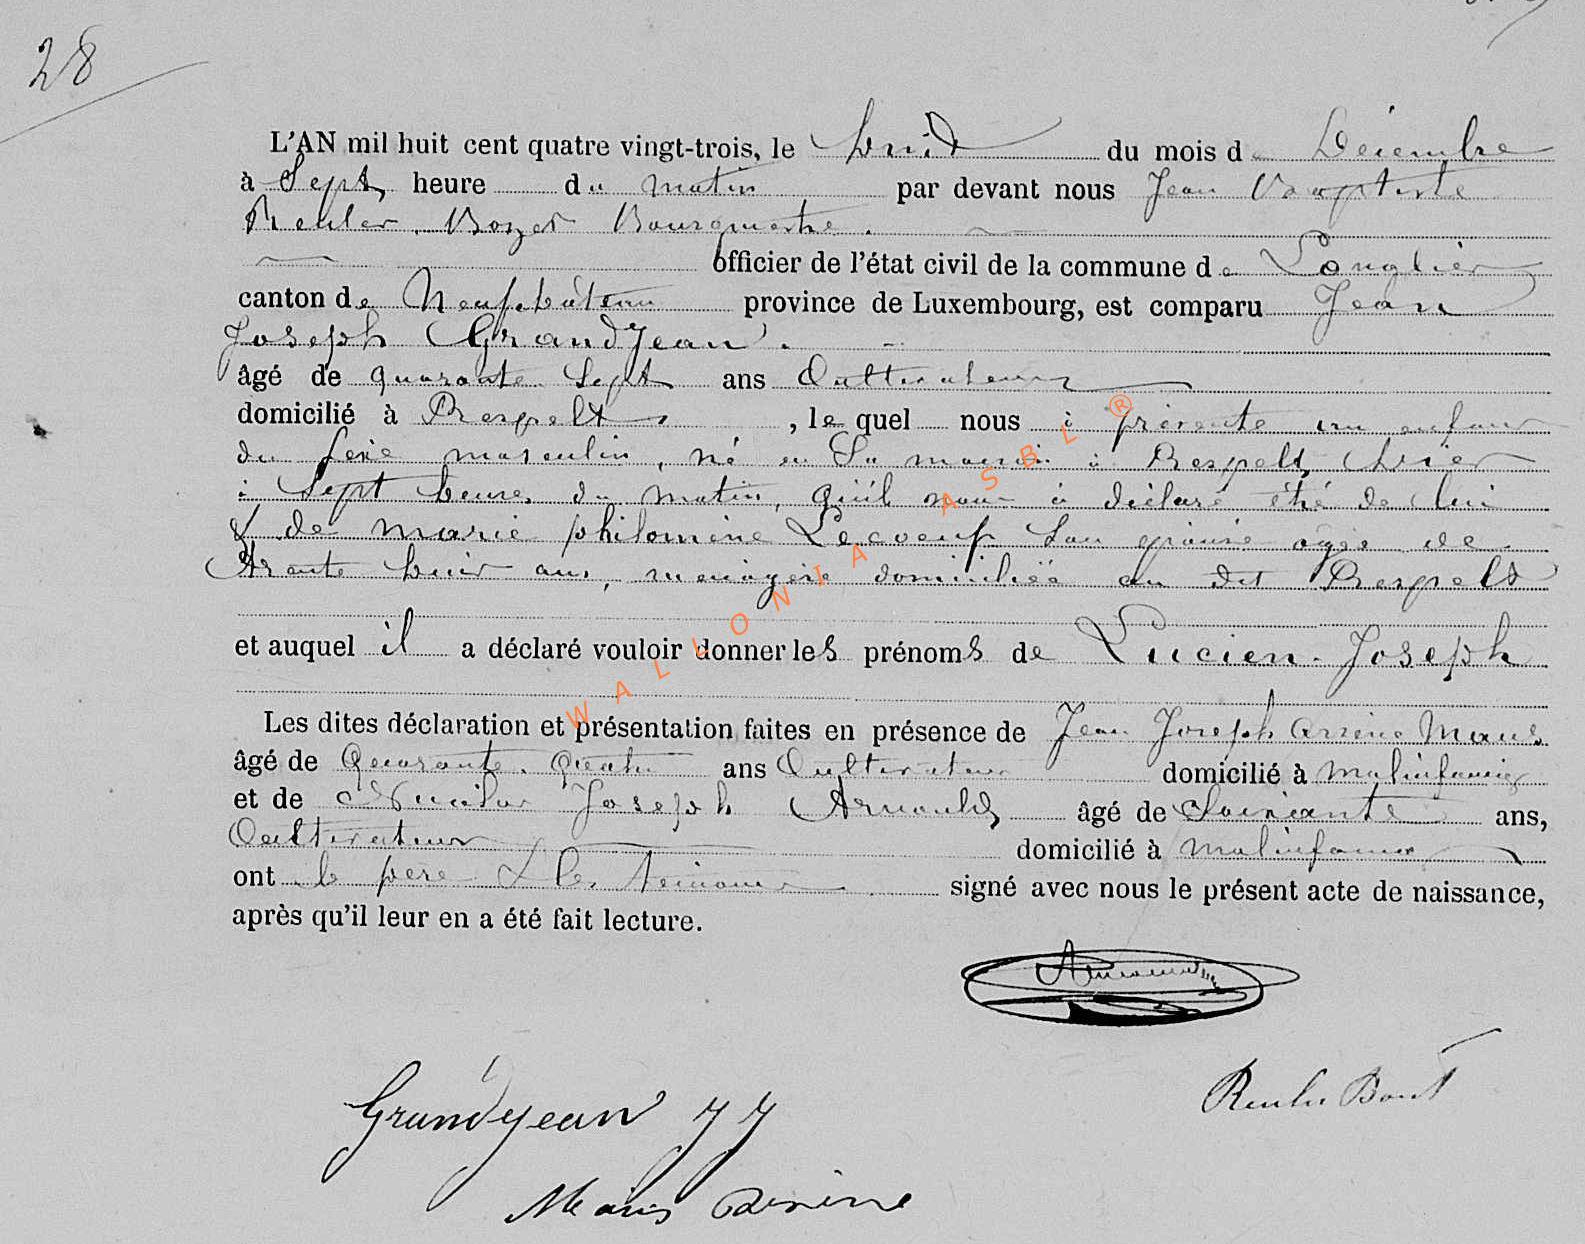 28
L'AN mil huit cent quatre vingt-trois, le huit du mois de Décembre
à Sept heure du matin par devant nous Jean Baptiste
Reuler Bourgmestre.
officier de l'état civil de la commune de Longlier
canton de Neufchâteau province de Luxembourg, est comparu Jean
Joseph Grandjean.
âgé de quarante Sept ans Cultivateur
domicilié à Respelt, le quel nous à présenté un enfant
du sexe masculin, né en Sa maison à Respelt, hier
à Sept heures du matin, qu'il nous à déclaré être de lui
& de marie philomène Lecoeuf Son épouse agée de
trente huit ans, menagère domiciliée au dit Respelt
et auquel il a déclaré vouloir donner les prénoms de Lucien Joseph
Les dites déclaration et présentation faites en présence de Jean Joseph Arsène Maus
âgé de Quarante quatre ans Cultivateur domicilié à malinfaing
et de Nicolas Joseph Arnould âgé de Soixante ans,
Cultivateur domicilié à malinfaing
ont le père & les témoins signé avec nous le présent acte de naissance,
après qu'il leur en a été fait lecture.
Grandjean JJ
Maus Arsène
WALLONIA ASBL ®